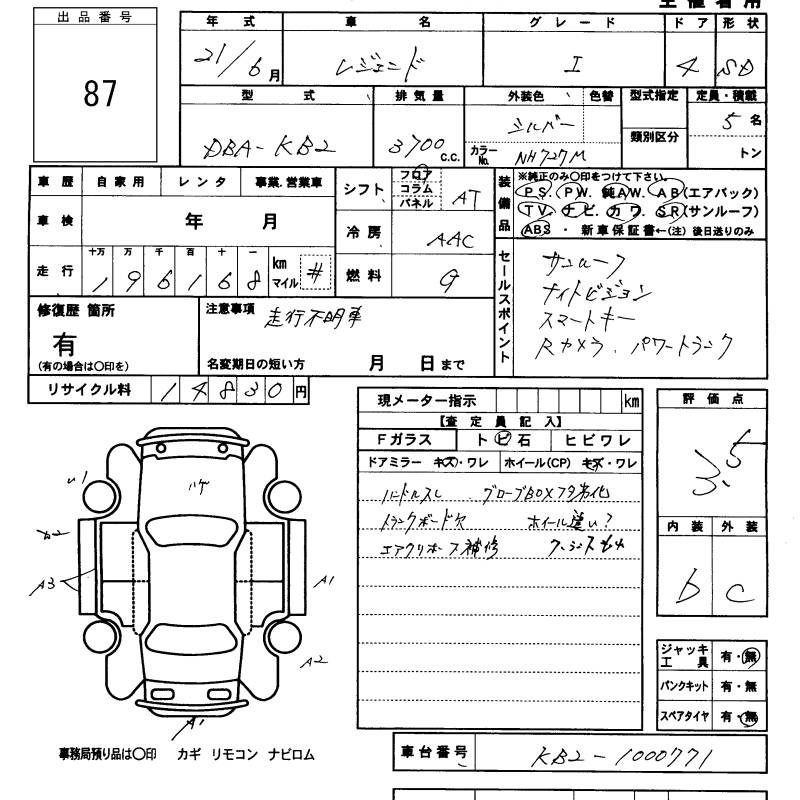 主催者用
出品番号
87
年式 車名 グレード ドア 形状
21/6月 レジェンド I 4 SD
型式 排気量 外装色 色替 型式指定 定員・積載
DBA-KB2 3700 c.c. シルバー 5名
カラーNo. NH727M 類別区分 トン
車歴 自家用 レンタ 事業.営業車
シフト フロア コラム パネル AT
装備品 ※純正のみ○印をつけて下さい。
PS. PW. 純AW. AB(エアバック)
TV. ナビ. カワ. SR(サンルーフ)
ABS ・ 新車保証書←(注) 後日送りのみ
車検 年 月
冷房 AAC
走行 十万 万 千 百 十 一
1 9 6 1 6 8 km マイル #
燃料 G
セールスポイント
サンルーフ
ナイトビジョン
スマートキー
Rカメラ. パワートランク
修復歴 箇所
有
(有の場合は○印を)
注意事項 走行不明車
名変期日の短い方 月 日まで
リサイクル料 1 4 8 3 0 円
現メーター指示 km
【査定員記入】
Fガラス トビ石 ヒビワレ
ドアミラー キズ・ワレ ホイール(CP) キズ・ワレ
ハンドルスレ グローブBOXフタ劣化
トランクボード欠 ホイール違い?
エアクリホース補修
評価点
3.5
内装 外装
b c
ハゲ
A3
A1
A2
A1
ジャッキ工具 有・無
パンクキット 有・無
スペアタイヤ 有・無
事務局預り品は○印 カギ リモコン ナビロム
車台番号 KB2-1000771